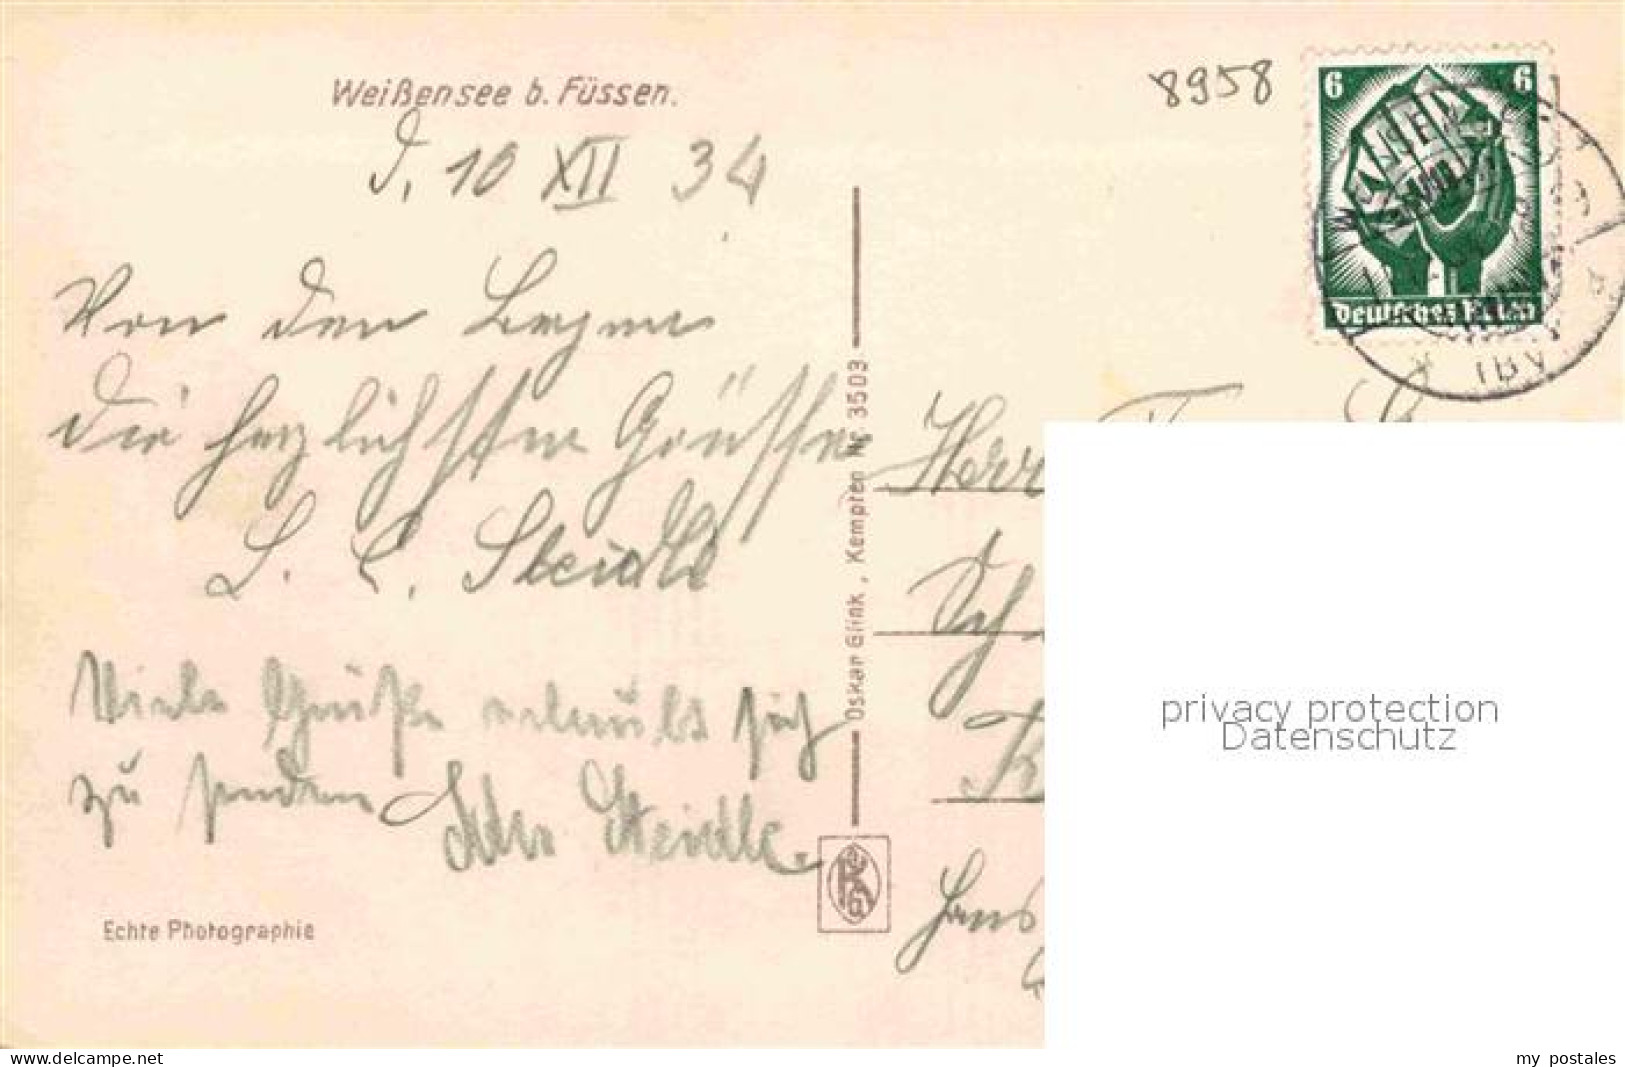 Weißensee b. Füssen.
D. 10 XII 34
8958
6 6
Deutsches Reich
Von den Bergen
die herzlichsten Grüsse
L. C. Steidle
Viele Grüße erlaubt sich
zu senden Steidle.
Echte Photographie
Oskar Glink, Kempten Nr. 3503
Herr
privacy protection
Datenschutz
www.delcampe.net
my postales